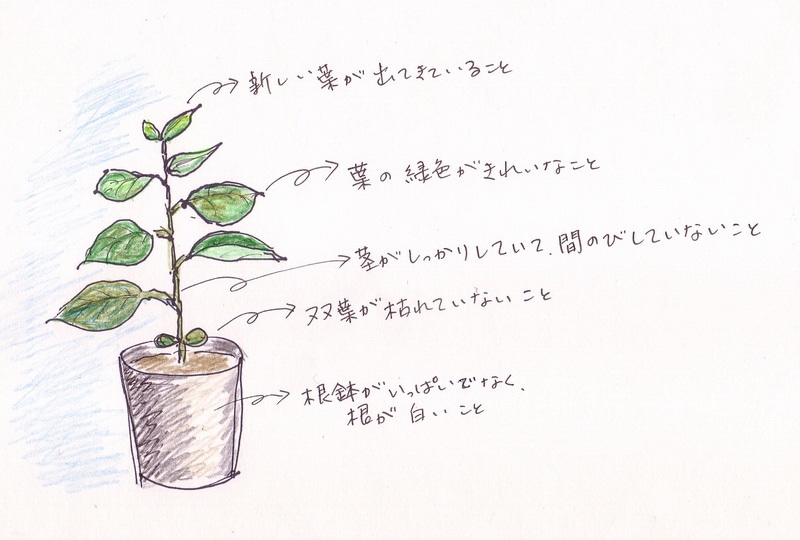 新しい葉が出てきていること
葉の緑色がきれいなこと
茎がしっかりしていて、間のびしていないこと
双葉が枯れていないこと
根鉢がいっぱいでなく、
根が白いこと